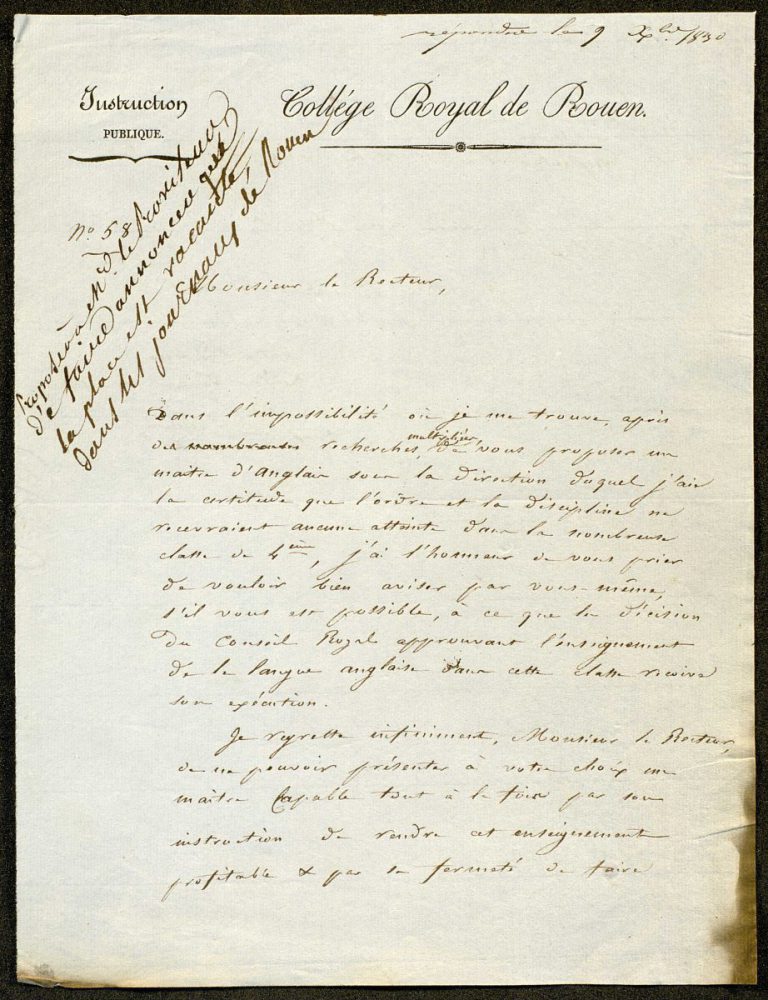 répondu le 9 Xbre 1830
Instruction
PUBLIQUE.
Collège Royal de Rouen.
No. 58
Proposer à Mr. le Proviseur
de faire annoncer que
la place est vacante,
dans les journaux de Rouen
Monsieur le Recteur,
Dans l'impossibilité où je me trouve, après
des nombreuses recherches multipliées, de vous proposer un
maître d'Anglais sous la direction duquel j'aie
la certitude que l'ordre et la discipline ne
recevraient aucune atteinte dans la nombreuse
classe de 4ème, j'ai l'honneur de vous prier
de vouloir bien aviser par vous-même,
s'il vous est possible, à ce que la décision
du Conseil Royal approuvant l'enseignement
de la langue anglaise dans cette classe reçoive
son exécution.
Je regrette infiniment, Monsieur le Recteur,
de ne pouvoir présenter à votre choix un
maître capable tout à la fois par son
instruction de rendre cet enseignement
profitable & par sa fermeté de faire